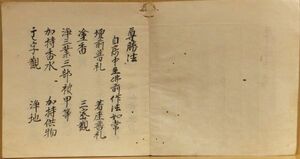 尊勝法
自房中至佛前作法如常
壇前普礼　著座普礼
塗香　三密観
浄三業三部被甲等
加持香水　加持供物
　　字觀　浄地